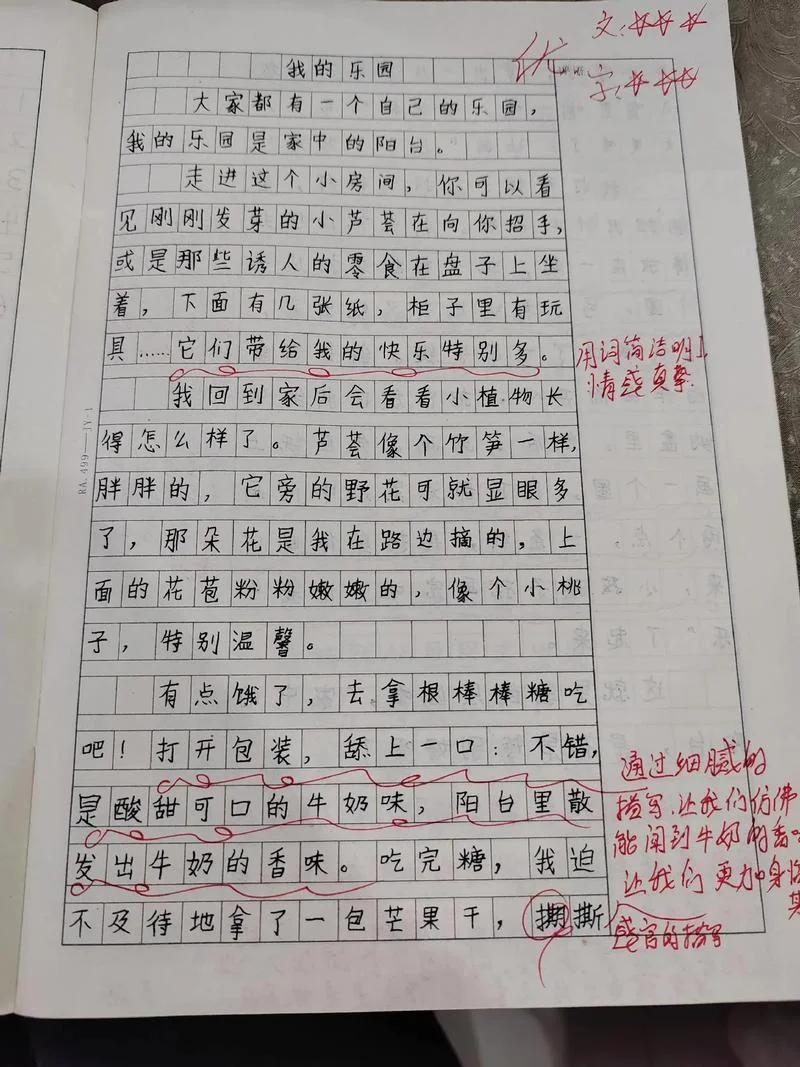 优
文:☆☆☆
字:☆☆☆
我的乐园
大家都有一个自己的乐园，
我的乐园是家中的阳台。
走进这个小房间，你可以看
见刚刚发芽的小芦荟在向你招手，
或是那些诱人的零食在盘子上坐
着，下面有几张纸，柜子里有玩
具……它们带给我的快乐特别多。
用词简洁明了
情感真挚
我回到家后会看看小植物长
得怎么样了。芦荟像个竹笋一样，
胖胖的，它旁的野花可就显眼多
了，那朵花是我在路边摘的，上
面的花苞粉粉嫩嫩的，像个小桃
子，特别温馨。
有点饿了，去拿根棒棒糖吃
吧！打开包装，舔上一口：不错，
是酸甜可口的牛奶味，阳台里散
发出牛奶的香味。吃完糖，我迫
不及待地拿了一包芒果干，撕
通过细腻的
描写，让我们仿佛
能闻到牛奶的香味
让我们更加身临
其
感官的描写
RA.499——JY-1